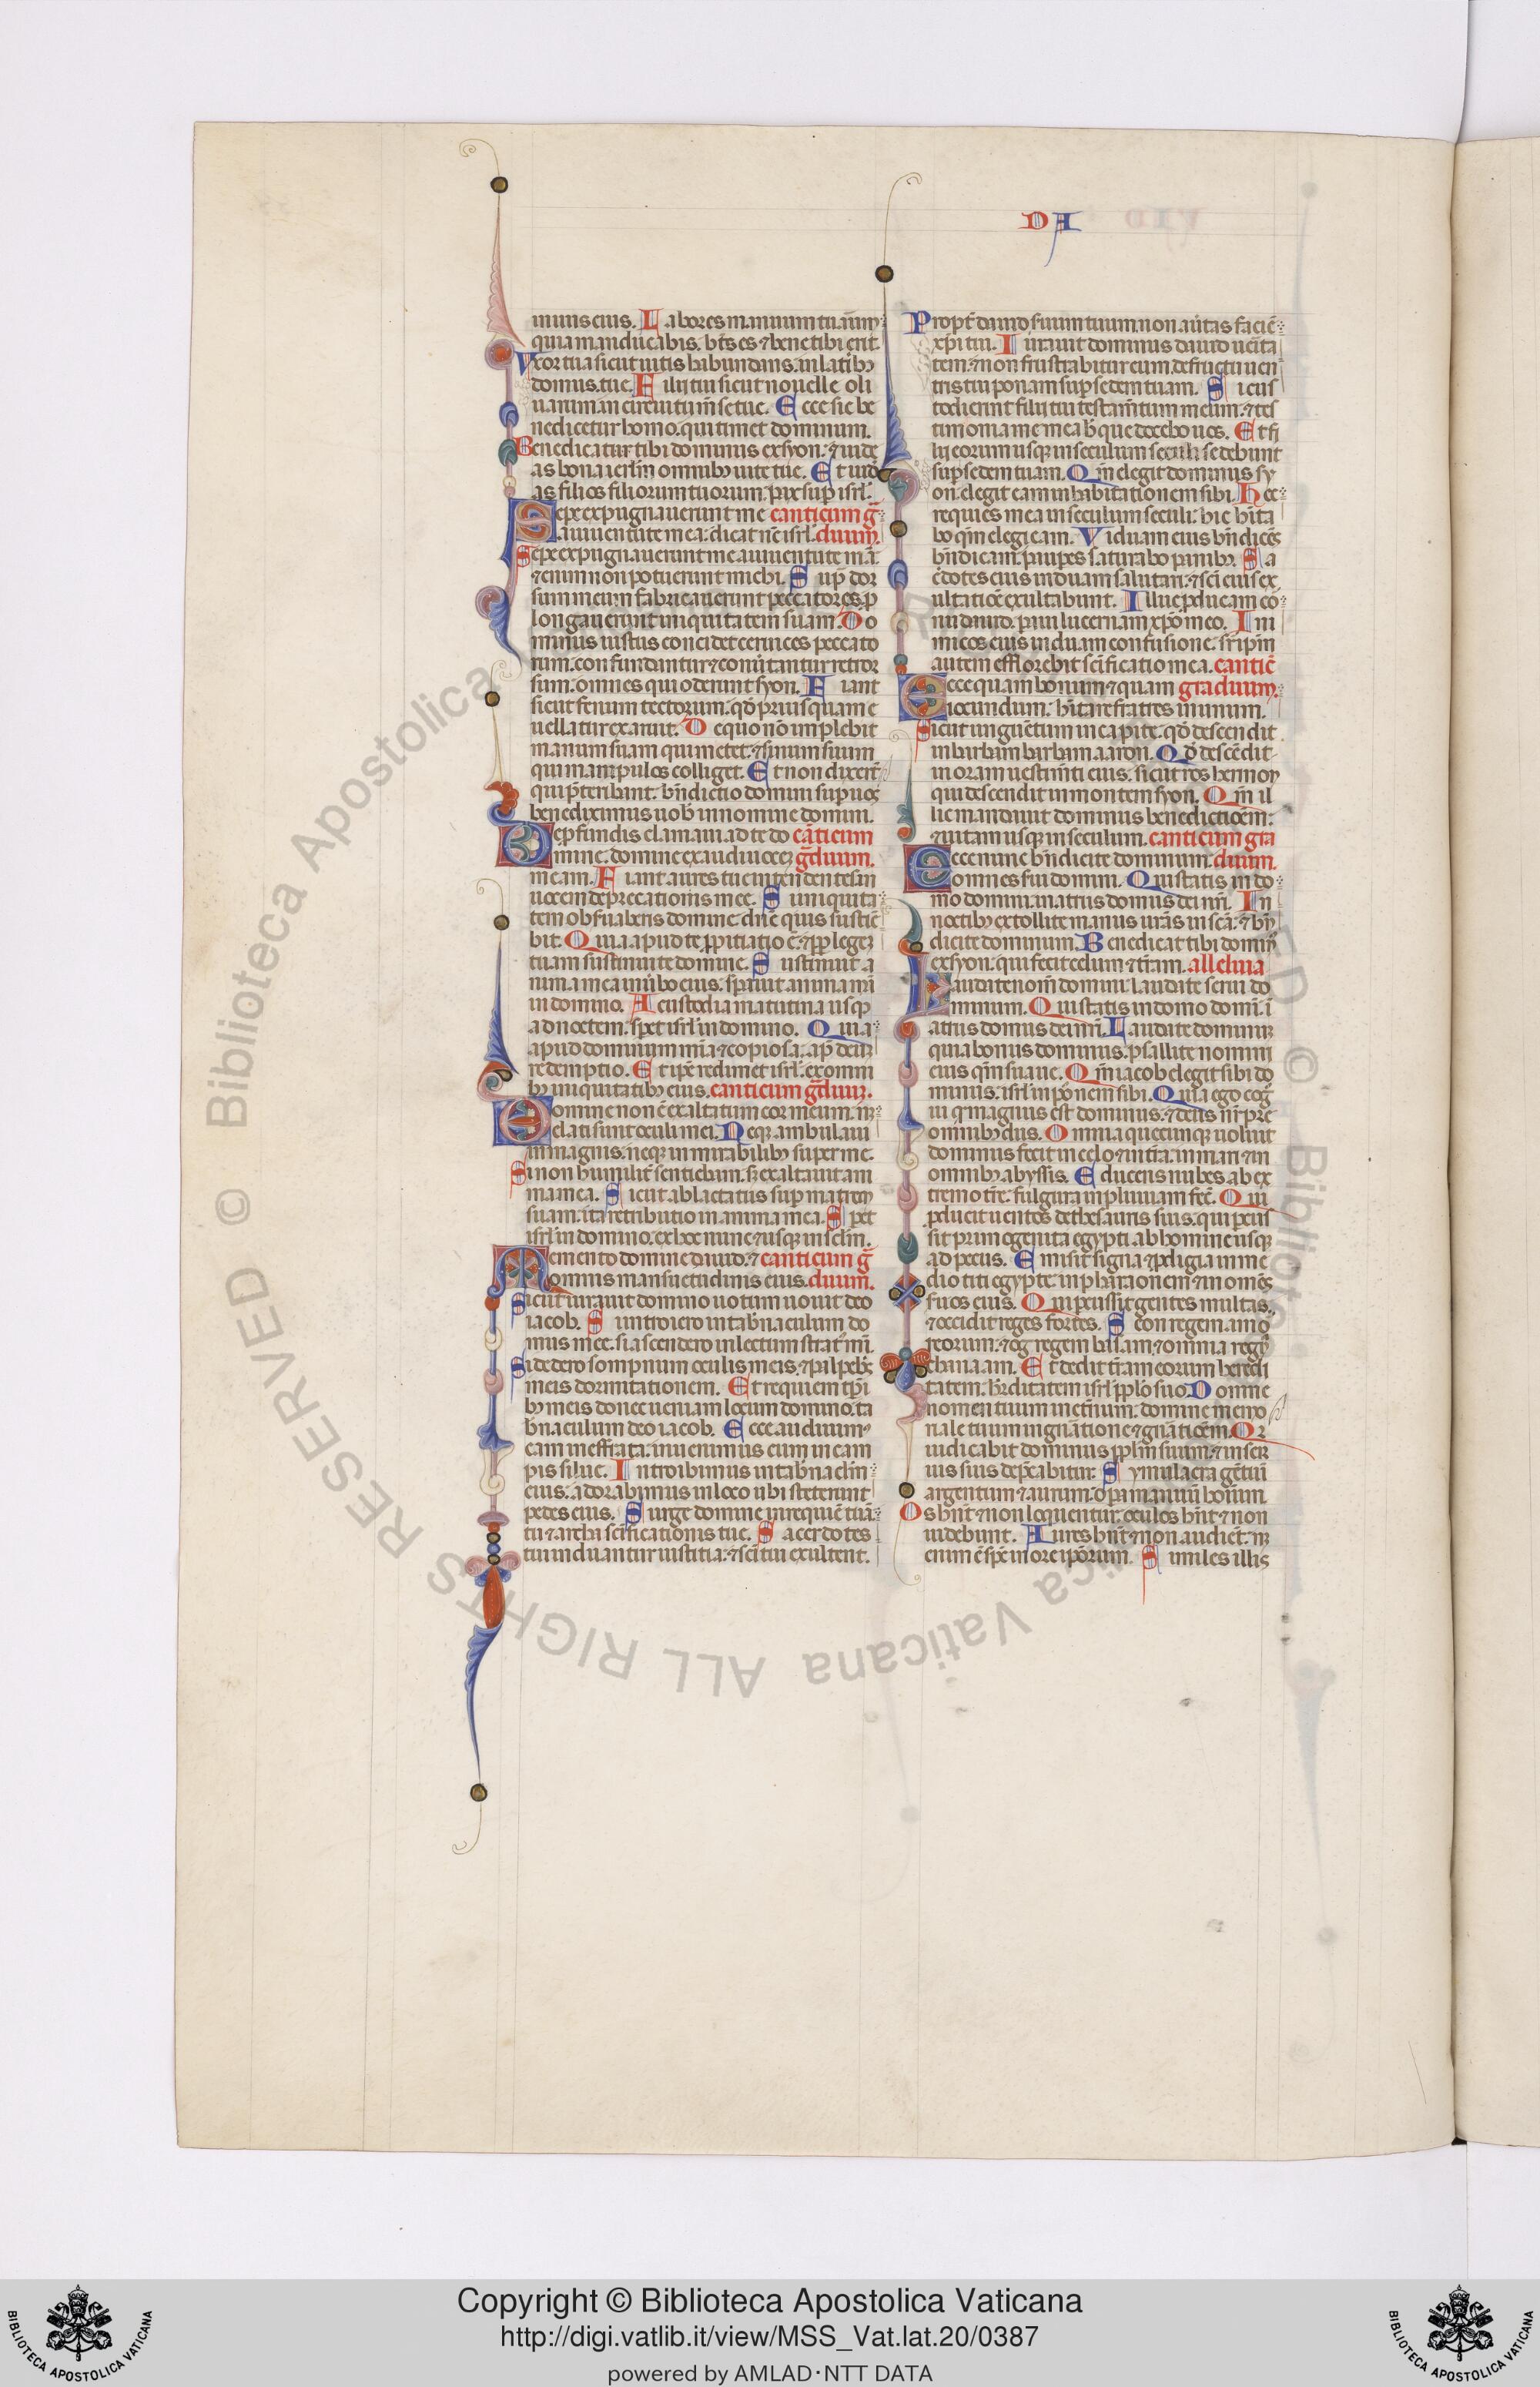 DA
in uiis eius. Labores manuum tuarum
quia manducabis. bt̄s es ⁊ bene tibi erit
Vxor tua sicut uitis habundans. in latib;
domus tue. Filii tui sicut nouelle oli
uarum. in circuitu m̄se tue. Ecce sic be
nedicetur homo. qui timet dominum.
Benedicat tibi dominus ex syon. ⁊ uide
as bona ierl̄m omnib; uite tue. Et uide
as filios filiorum tuorum. pacē sup̄ isrl̄.
Sepe expugnauerunt me canticum ḡ
a iuuentute mea: dicat nc̄ isrl̄. duum.
Sepe expugnauerunt me a iuuentute mea
⁊enim non potuerunt michi. Sup̄ dor
sum meum fabricauerunt peccatores. p̄
longauerunt iniquitatem suam. Do
minus iustus concidet ceruices peccato
rum. confundantur ⁊ conūtantur retror
sum. omnes qui oderunt syon. Fiant
sicut fenum tectorum. qd̄ priusquam e
uellatur exaruit. De quo nō implebit
manum suam qui metet. ⁊ sinum suum
qui manipulos colliget. Et non dixert̄
qui p̄teribant. bn̄dictio domini sup̄ uos
benediximus uob̄ in nomine domini.
De p̄fundis clamaui ad te do cāticum
mine. domine exaudi uocē ḡduum.
meam. Fiant aures tue intendentes in
uocem deprecationis mee. Si iniquita
tem obseruaberis domine. dn̄e quis sustiē
bit. Quia apud te p̄pitiatio ē. ⁊ pp̄ legē
tuam sustinui te domine. Sustinuit a
nima mea in ūbo eius. sp̄auit anima m̄a
in domino. A custodia matutina usq;
ad noctem. sp̄et isrl̄ in domino. Quia
apud dominum mīa ⁊ copiosa. ap̄ deum
redemptio. Et ip̄e redimet isrl̄. ex omni
b; iniquitatib; eius. canticum ḡduum.
Domine non ē exaltatum cor meum. n̄
elati sunt oculi mei. Neq; ambulaui
in magnis. neq; in mirabilib; super me.
Si non humilit̄ sentiebam. sz exaltaui ani
mam mea. Sicut ablactatus sup̄ matrem
suam. ita retributio in anima mea. Sp̄et
isrl̄ in domino. ex hoc nunc ⁊ usq; in sclm̄.
Memento domine dauid. ⁊ canticum ḡ
omnis mansuetudinis eius. duum.
Sicut iurauit domino uotum uouit deo
iacob. Si introiero in tab̄naculum do
mus mee. si ascendero in lectum strati mi.
Si dedero sompnum oculis meis. ⁊ palpeb̄s
meis dormitationem. Et requiem tp̄i
b; meis donec ueniam locum domino. ta
b̄naculum deo iacob. Ecce audiuim;
eam in effrata. inuenimus eum in cam
pis silue. Introibimus in tab̄naclm̄
eius. adorabimus in loco ubi steterunt
pedes eius. Surge domine in requiē tuā
tu ⁊ archa sc̄ificationis tue. Sacerdotes
tui induantur iustitia. ⁊ sc̄i tui exultent.
Propt̄ dauid suum tuum. non aūtas faciē
xp̄i tui. Iurauit dominus dauid uerita
tem. ⁊ non frustrabitur eum. de fructu uen
tris tui ponam sup̄ sedem tuam. Si cus
todierint filii tui testam̄tum meum. ⁊ tes
timonia mea h̄ que docebo uos. Et fi
lii eorum usq; in seculum seculi. sedebunt
sup̄ sedem tuam. Qm̄ elegit dominus sy
on. elegit eam in habitationem sibi. Hec
requies mea in seculum seculi. hic hīta
bo qm̄ elegi eam. Viduam eius bn̄dicēs
bn̄dicam. paup̄es saturabo panib;. Sa
c̄dotes eius induam salutari. ⁊ sc̄i eius ex
ultatiōe exultabunt. Illuc p̄ducam co
nu dauid. paraui lucernam xp̄o meo. Ini
micos eius induam confusione. sr̄ ip̄m
autem efflorebit sc̄ificatio mea. canticē
Ecce quam bonum ⁊ quam graduum.
iocundum. hītare fratres in unum.
Sicut unguētum in capite. qd̄ descendit
in barbam barbam aaron. Qd̄ descēdit
in oram uestim̄ti eius. sicut ros hermon
qui descendit in montem syon. Qm̄ il
lic mandauit dominus benedictiōem:
⁊ uitam usq; in seculum. canticum gra
Ecce nunc bn̄dicite dominum. duum.
omnes sui domini. Qui statis in do
mo domini. in atriis domus dei nr̄i. In
noctib; extollite manus ur̄as in sc̄a. ⁊ bn̄
dicite dominum. Benedicat tibi domin;
ex syon. qui fecit celum ⁊ tr̄am. alleluia
Laudate nom̄ domini. laudate serui do
minum. Qui statis in domo domī. ī
atriis domus dei nr̄i. Laudate dominū
quia bonus dominus. psallite nomini
eius qm̄ suaue. Qm̄ iacob elegit sibi do
minus. isrl̄ in p̄onem sibi. Quia ego coḡ
ui q magnus est dominus. ⁊ deus nr̄ pre
omnib; diis. Omnia quecunq; uoluit
dominus fecit in celo ⁊ in tr̄a. in mari ⁊ in
omnib; abyssis. Educens nubes ab ex
tremo tr̄e. fulgura in pluuiam fec̄. Qui
p̄ducit uentos de thesauris suis. qui p̄cus
sit primogenita egypti. ab homine usq;
ad pecus. Emisit signa ⁊ p̄digia in me
dio tui egypte. in pharaonem ⁊ in omēs
suos eius. Qui p̄cussit gentes multas.
⁊ occidit reges fortes. Seon regem amo
reorum. ⁊ og regem basan. ⁊ omnia regna
chanaam. Et dedit tr̄am eorum heredi
tatem. h̄editatem isrl̄ pplo suo. Domine
nomen tuum in et̄num. domine memo
riale tuum in gn̄atione ⁊ gn̄atiōem. Qr
iudicabit dominus pplm suum. ⁊ in ser
uis suis dep̄cabitur. Symulacra gētiū
argentum ⁊ aurum. op̄a manuū hoīum
Os hn̄t ⁊ non loquentur. oculos hn̄t ⁊ non
uidebunt. Aures hn̄t ⁊ non audient. n̄
enim ē sp̄s in ore ip̄orum. Similes illis
Copyright © Biblioteca Apostolica Vaticana
http://digi.vatlib.it/view/MSS_Vat.lat.20/0387
powered by AMLAD·NTT DATA
BIBLIOTECA APOSTOLICA VATICANA
BIBLIOTECA APOSTOLICA VATICANA
© Biblioteca Apostolica Vaticana ALL RIGHTS RESERVED